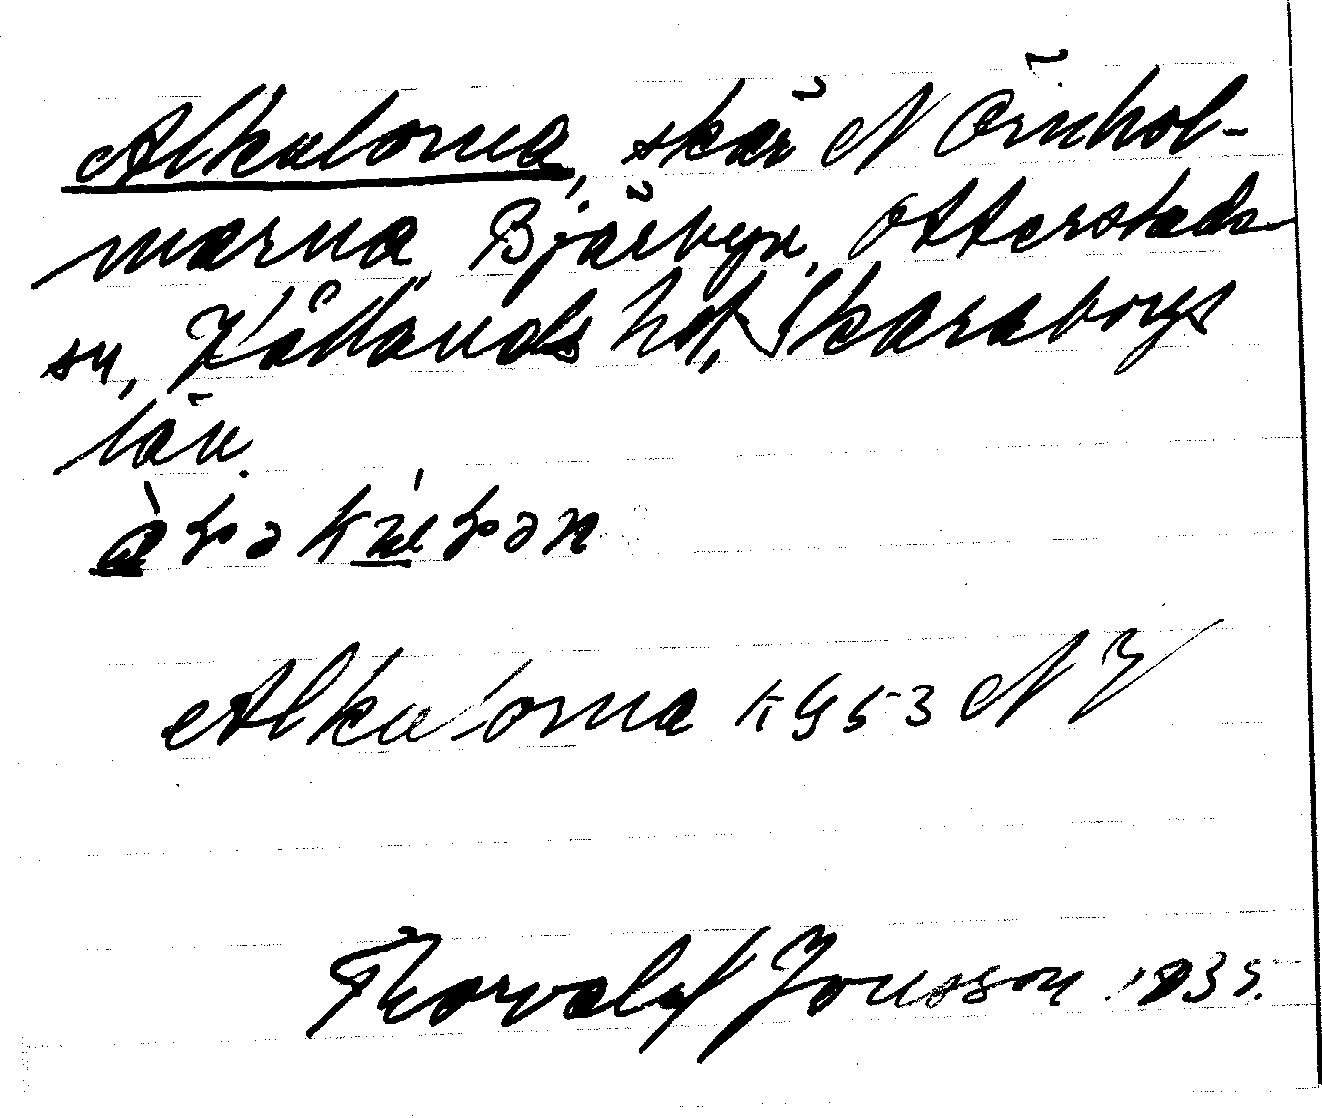 Alkulorna, skär N Örnhol-
marna, Bjärbyn, Otterstads
sn, Kållands hd, Skaraborgs
län.
Alkulorna 1953 NV
Thorvald Jonsson 1935.